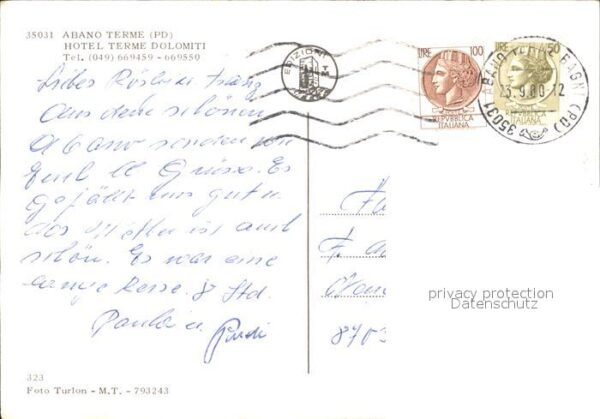 35031 ABANO TERME (PD)
HOTEL TERME DOLOMITI
Tel. (049) 669459 - 669550
EDIZIONI
TM
LIRE 100
REPUBBLICA
ITALIANA
LIRE 50
REPUBBLICA
ITALIANA
35031 ABANO TERME (PD)
23.9.80-12
Liebes Rösli u Franz
Aus dem schönen
Abano senden wir
Euch ll Grüsse. Es
gefällt uns gut u
das Wetter ist auch
schön. Es war eine
lange Reise. 8 Std.
Paula u. Rudi
Fa
F.
870
privacy protection
Datenschutz
323
Foto Turlon - M.T. - 793243